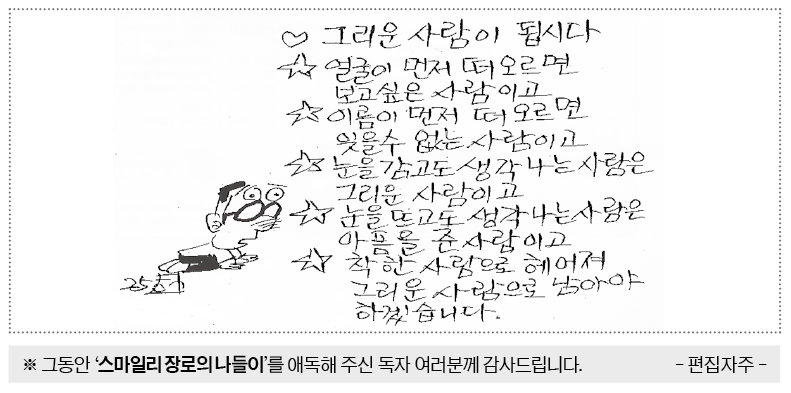 ♡ 그리운 사람이 됩시다
☆ 얼굴이 먼저 떠오르면
보고싶은 사람이고
☆ 이름이 먼저 떠오르면
잊을수 없는 사람이고
☆ 눈을 감고도 생각나는 사람은
그리운 사람이고
☆ 눈을 뜨고도 생각나는 사람은
아픔을 준 사람이고
☆ 착한 사람으로 헤어져
그리운 사람으로 남아야
하겠습니다.
※ 그동안 ‘스마일리 장로의 나들이’를 애독해 주신 독자 여러분께 감사드립니다. - 편집자주 -